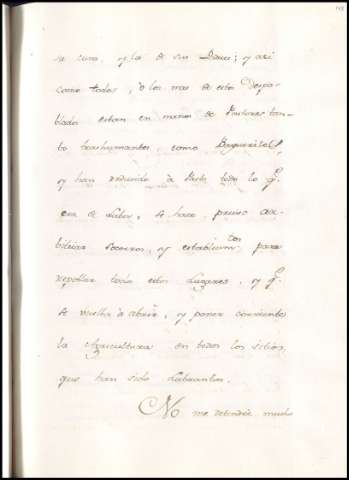 se cura, y la de sus Daños; y asi
como todos, o los mas de esto Despo-
blado estan en manos de Pastores tan-
to trashumantes, como
y han reducido à Pasto todo lo q.e
era de Labor, se hace preciso ar-
bitrar socorros, y establecim.tos para
repoblar todos estos Lugares, y q.e
se vuelba à abrir, y poner corriente
la Agricultura en todos los sitios,
que han sido Labrantios.
No me detendré mucho